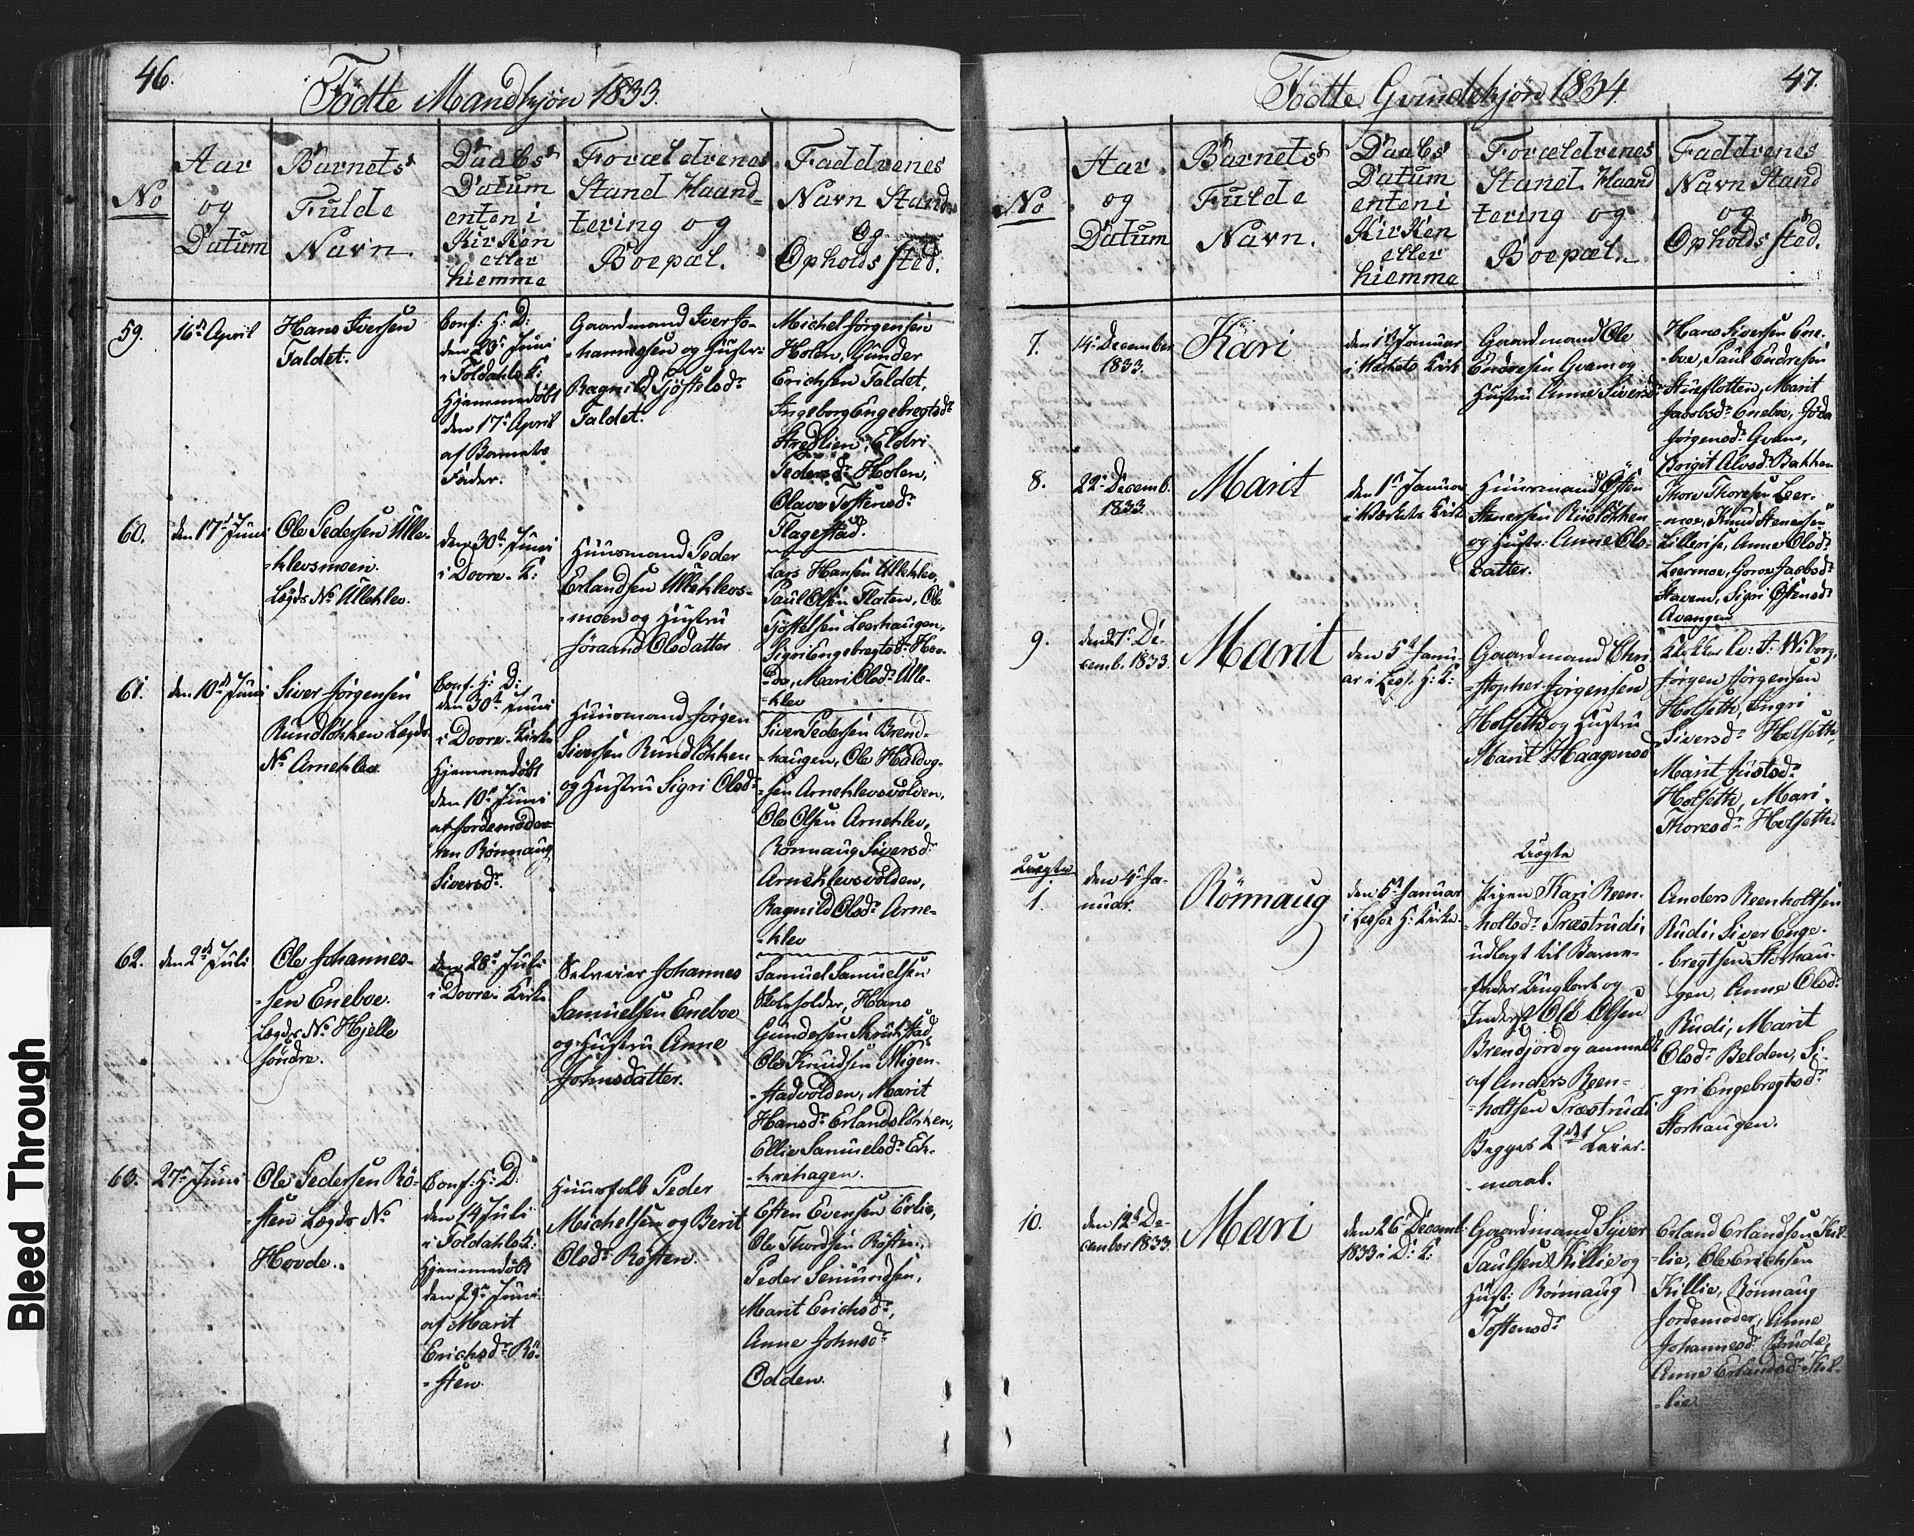 46.
Födte Mandkjön 1833.
No
Aar
og
Datum
Barnets
Fulde
Navn.
Daabs
Datum
enten i
Kirken
eller
hiemme
Forældrenes
Stand Haand-
tering og
Boepæl.
Faddrenes
Navn Stand
og
Opholds sted.
59.
16de April
Hans Iversen
Faldet.
Conf: H: D:
den 23de Juni
i Foldahls K:
Hjemmedöbt
den 17de April
af Barnets
Fader.
Gaardmand Iver Jo-
-hannessen og Hustru
Ragnild Tjöstelsdr
Faldet.
Michel Jörgensen
Holen, Gunder
Erichsen Faldet,
Ingeborg Engebregtsdr
Stredlien, Eldri
Pedersdr Holen,
Olave Toftensdr
Flagestad.
60.
den 17de Juni
Ole Pedersen Ulle-
-klevsmoen.
Lægds No Ullehlev.
den 30te Juni
i Dovre-K:
Huusmand Peder
Erlandsen Ullehlevs-
-moen og Hustru
Jöraand Olsdatter
Lars Hansen Ullehlev,
Paul Olsen Flaten, Ole
Tjöstelsen Leerhaugen,
Sigri Engebregtsdr Hov-
-de, Mari Olsdr Ulle-
-hlev
61.
den 10de Juni
Siver Jörgensen
Rundlökken Lægds
No Arnehlev
Conf: H: D:
den 30te Juni
i Dovre-Kirke
Hjemmedöbt
den 10de Juni
af Jordemoder-
ren Rönnaug
Siversdr.
Huusmand Jörgen
Siversen Rundlökken
og Hustru Sigri Olsdr
Siver Pedersen Brend-
-haugen, Ole Haldog-
-sen Arnehlevsvolden,
Ole Olsen Arnehlev,
Rönnaug Siversdr
Arnehlevsvolden,
Ragnild Olsdr Arne-
-hlev
62.
den 2de Juli
Ole Johannes-
-sen Eneboe.
Lægds No Hjelle
söndre.
den 28de Juli
i Dovre Kirke
Selveier Johannes
Samuelsen Eneboe
og Hustru Anne
Johnsdatter.
Samuel Samuelsen
Hans
Gundersen
Ole Knudsen Migen-
-stadvolden, Marit
Hansdr Erlandslökken,
Ellie Samuelsdr Ek-
-krehagen.
63.
27de Juni
Ole Pedersen Rö-
-sten Lægds No
Hovde.
Conf: H: D:
den 14 Juli
i Foldahls K:
Hjemmedöbt
den 29de Juni
af Marit
Erichsdr Rö-
-sten.
Huusfolk Peder
Michelsen og Berit
Olsdr Rösten.
Esten Evensen Erlie,
Ole Thordsen Rösten,
Peder Semundsen,
Marit Erichsdr,
Anne Johnsdr
Odden.
47.
Födte Qvindekjön 1834.
No
Aar
og
Datum
Barnets
Fulde
Navn.
Daabs
Datum
enten i
Kirken
eller
hiemme
Forældrenes
Stand Haand
tering og
Boepæl.
Faddrenes
Navn Stand
og
Opholds sted.
7.
14de December
1833.
Kari
den 1ste Januar
i Værkets Kirk
Gaardmand Ole
Endresen Qvam og
Hustru Anne Siversdr
Hans Siversen Ene-
-boe, Paul Endresen
Marit
Jacobsdr Eneboe,
Jörgensdr Qvam,
Brigit Alvsdr Bakken
8.
22de Decemb.
1833.
Marit
den 1ste Januar
i Værkets Kirke
Huusmand Östen
Stenersen Ruslökken
og Hustr: Anne Ols-
datter.
Thore Thoresen Leer-
-moe, Knud Stenersen
Lillerise, Anne Olsdr
Leermoe, Goroe Jacobsdr
Stavem, Sigri Östensdr
Avangen
9.
den 27de De-
cemb. 1833.
Marit
den 5te Janu-
ar i Lesj. H: K:
Gaardmand Chri
-stopher Jörgensen
Holseth og Hustru
Marit Haagensdr
Klokker Lv: F: Wiborg,
Jörgen Jörgensen
Holseth, Ingri
Siversdr Holseth,
Marit Justsdr
Holseth, Mari
Thoresdr Holseth.
Uægte
1.
den 4de Ja-
nuar.
Rönnaug
den 6te Januar
i Lessöe H: Kirke.
Uægte
Pigen Kari Reen-
-holtsdr Træstrudi,
udlagt til Barne-
-fader Ungkarl og
Inderst Ole Olsen
Brendjord og anmeldt
af Anders Reen-
-holtsen Træstrudi
Begges 2det Leier-
-maal.
Anders Reenholtsen
Rudi, Siver Enge-
-bregtsen Storhau-
-gen, Anne Olsdr
Rudi, Marit
Olsdr Belden, Si-
-gri Engebregtsdr
Storhaugen.
10.
den 12te De-
cember 1833.
Mari
den 26de Decemb:
1833 i D: K:
Gaardmand Siver
Paulsen Killie og
Hust: Rönnaug
Toftensdr
Erland Erlandsen Kil-
-lie, Ole Erichsen
Killie, Rönnaug
Jordemoder, Anne
Johannesdr Bude,
Anne Erlandsdr Kil-
-lie.
Bleed Through